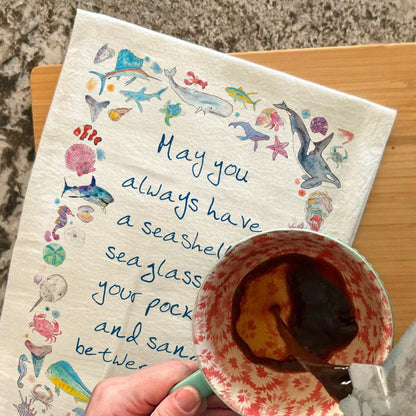 May you
always have
a seashell
seaglass
your pock
and san
betwe